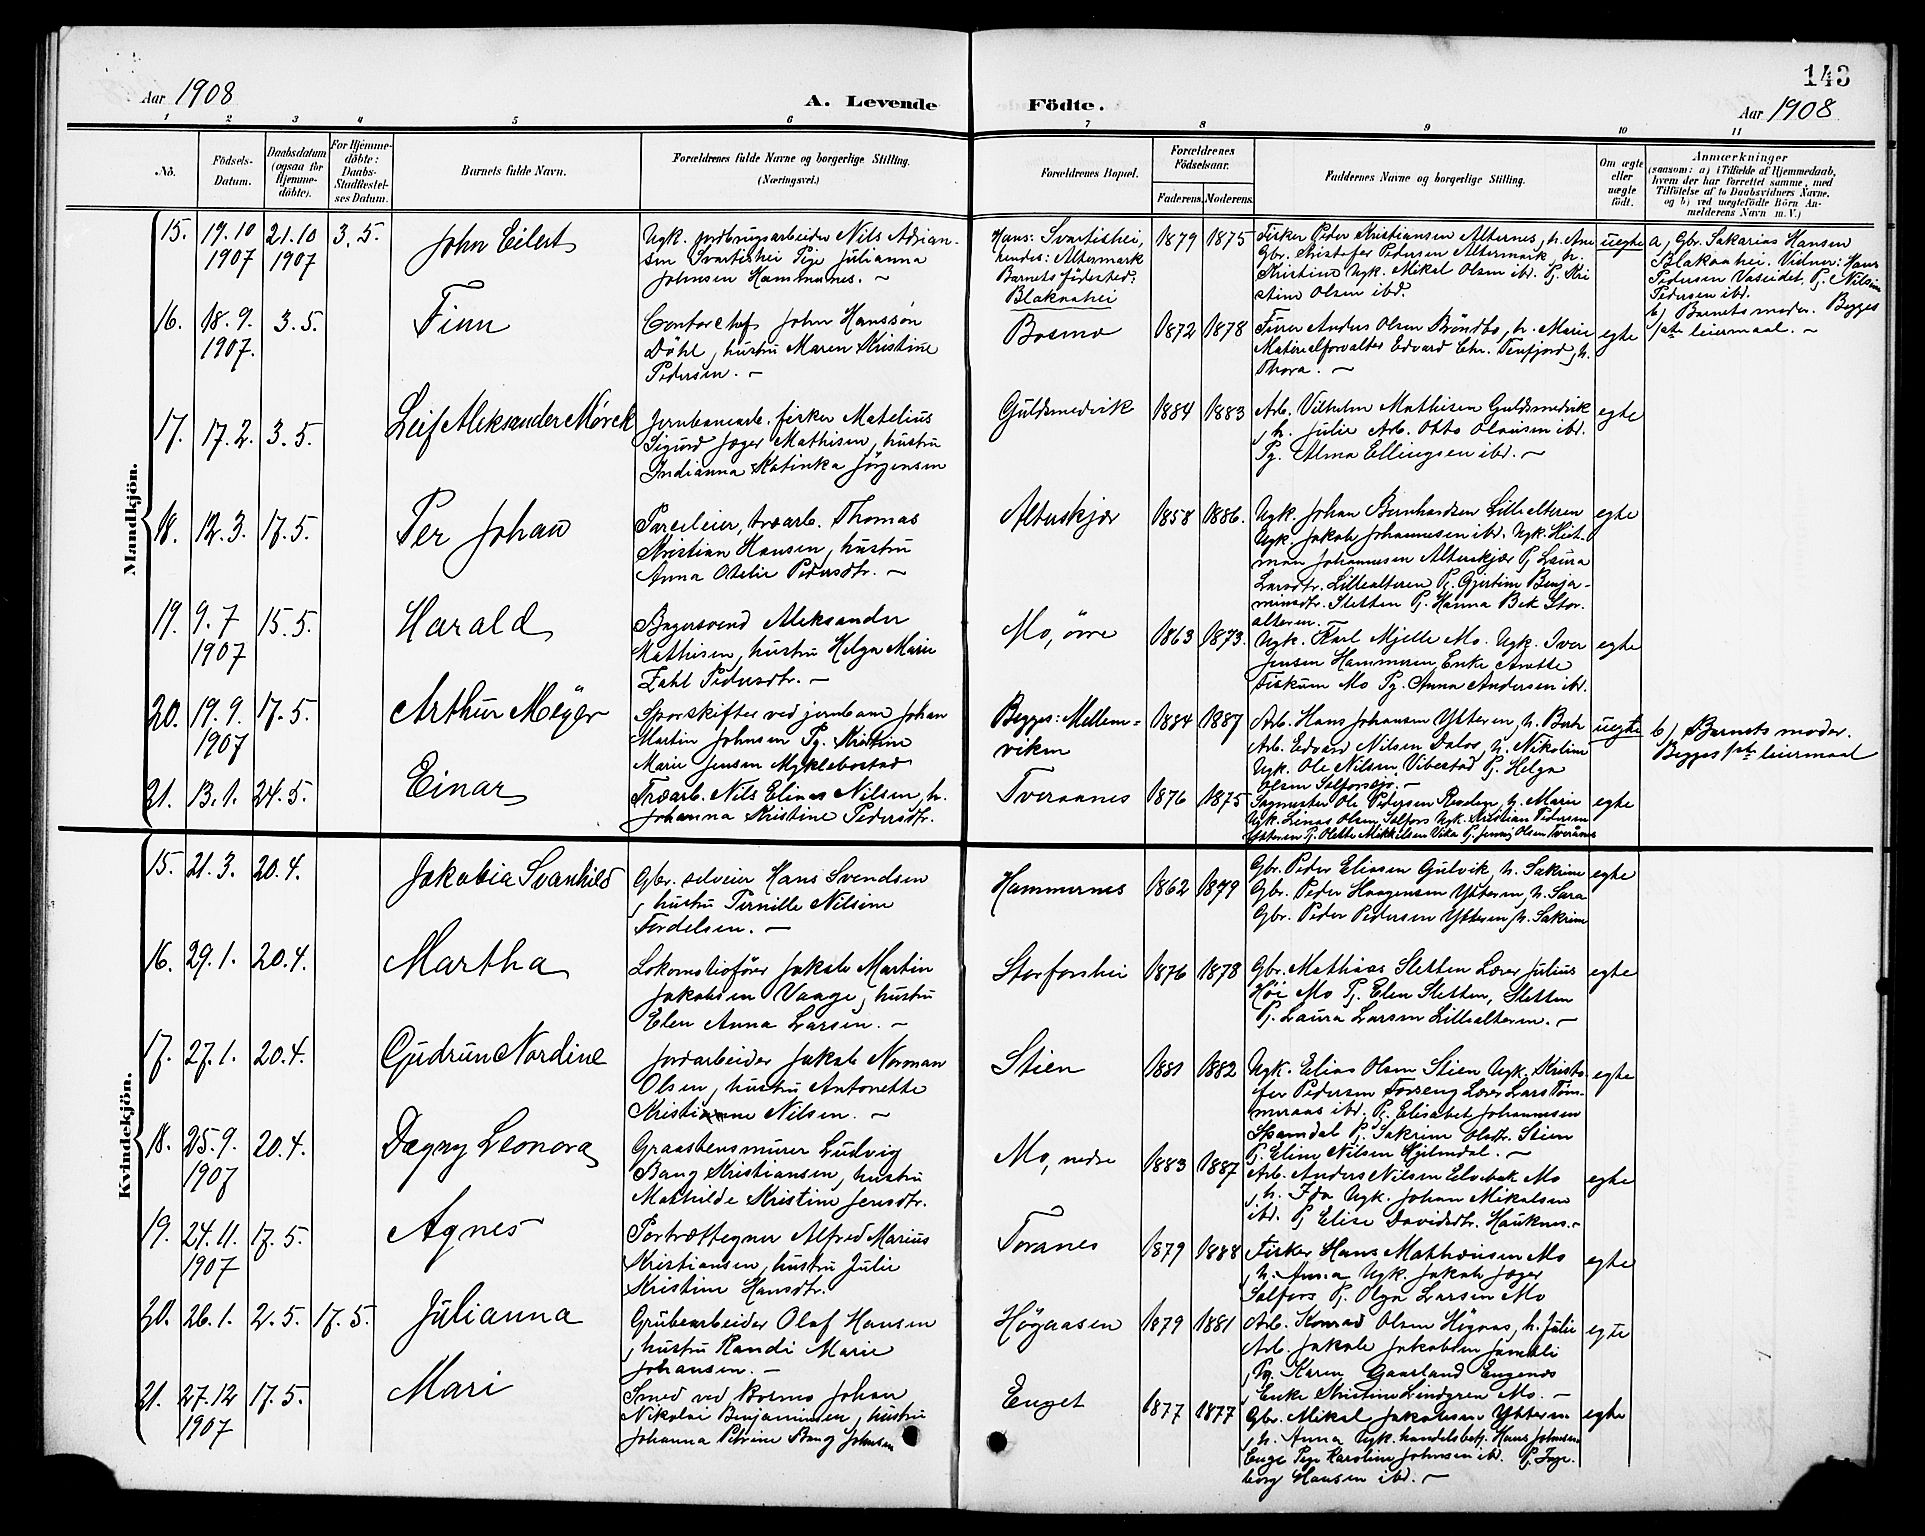 143
Aar 1908
A. Levende Födte.
Aar 1908.
1 2 3 4 5 6 7 8 9 10 11
No.
Födsels-Datum.
Daabsdatum (ogsaa for Hjemme-döbte).
For Hjemme-döbte: Daabs-Stadfæstel-ses Datum.
Barnets fulde Navn.
Forældrenes fulde Navne og borgerlige Stilling.
(Næringsvei.)
Forældrenes Bopæl.
Forældrenes Födselsaar.
Faderens. Moderens.
Faddernes Navne og borgerlige Stilling.
Om ægte eller uægte födt.
Anmærkninger
(saasom: a) i Tilfælde af Hjemmedaab,
hvem der har forrettet samme, med
Tilföielse af to Daabsvidners Navne,
og b) ved uægtefödte Börn An-
melderens Navn m. V.)
Mandkjön.
15. 19.10 1907 21.10 1907 3.5. John Eilert
Ugk. jordbrugsarbeider Nils Adrian-
sen Svartishei Pige Julianna
Johnsen Hammernes. –
Hans: Svartishei,
hendes: Altermark
Barnets födested:
Blakaahei
1879 1875
Fisker Peder Kristiansen Alternes, h. Ane
Gbr. Kristofer Pedersen Altermark, h.
Kristine Ugk. Mikal Olsen ibd. Pg. Kri
stine Olsen ibd.
uegte
a, Gbr. Sakarias Hansen
Blakaahei. Vidner: Hans
Pedersen Vaseidet, Pg. Nilsine
Pedersen ibd.
b) Barnets moder. Begges
1ste leiermaal. –
16. 18.9. 1907. 3.5. Finn
Contorchef John Hansson
Döhl, hustru Maren Kristine
Pedersen. –
Bosmo
1872 1878
Anders Olsen Bröndbo, h. Marie
Materialforvalter Edvard Chr. Tenfjord, h.
Thora. –
egte
17. 17.2. 3.5. Leif Aleksander Mørck
Jernbanearb. fisker Matelius
Sigurd Jæger Mathisen, hustru
Indianna Katinka Jörgensen
Guldsmedvik
1884 1883
Arb. Vilhelm Mathisen Guldsmedvik
, h. Julie Arb. Otto Olausen ibd.
Pg. Alma Ellingsen ibd. –
egte
18. 12.3. 17.5. Per Johan
Parceleier, træarb. Thomas
Kristian Hansen, hustru
Anna Otelie Pedersdtr. –
Alterskjær
1858 1886.
Ugk. Johan Bernhardsen Lillealteren
Ugk. Jakob Johannesen ibd. Ugk. Hart-
man Johannesen Alterskjær Pg Laura
Larsdtr. Lillealteren Pg. Gjertine Benja-
minsdtr. Sletten Pg. Hanna Bek Stor-
alteren. –
egte
19. 9.7 1907 15.5. Harald
Bagersvend Aleksander
Mathisen, hustru Helga Marie
Zahl Pedersdtr. –
Mo, övre
1863 1873.
Ugk. Karl Mjelle Mo. Ugk. Iver
Jensen Hammeren, Enke Anette
Fiskum Mo Pg. Anna Andersen ibd.
egte
20. 19.9. 1907 17.5. Arthur Meyer
Sporskifter ved jernbane Johan
Martin Johnsen Pg. Kristine
Marie Jensen Myklebostad
Begges: Mellem-
viken
1884 1887
Arb. Hans Johansen Ytteren, h. Berta
Arb. Edvard Nilsen Dalos, h. Nikoline
Ugk. Ole Nilsen Vibestad Pg. Helga
Olsen Selforssjö. –
uegte
b) Barnets moder.
Begges 1ste leiermaal
21. 13.1. 24.5. Einar
Træarb. Nils Elinas Nilsen, h.
Johanna Kristine Pedersdtr.
Tveraanes
1876 1875
Sagmester Ole Pedersen, h. Marie
Ugk. Linas Olsen Selfors Ugk. Kristian Pedersen
Ytteren Pg. Olette Mikkelsen Vika Pg. Jenny Olsen Tveraanes
egte
Kvindekjön.
15. 21.3. 20.4. Jakobia Svanhild
Gbr. selveier Hans Svendsen
, hustru Pernille Nilsine
Fordelsen. –
Hammernes
1862 1879
Gbr. Peder Eliasen Gulvik, h. Sakrine
Gbr. Peder Haagensen Ytteren, h. Sara
Gbr. Peder Pedersen Ytteren, h. Sakrine
egte
16. 29.1. 20.4. Martha
Lokomotivförer Jakob Martin
Jakobsen Vaage, hustru
Elen Anna Larsen. –
Storforshei
1876 1878
Gbr. Mathias Sletten Lærer Julius
Høi Mo Pg. Elen Sletten, Sletten
Pg. Laura Larsen Lillealteren. –
egte
17. 27.1. 20.4. Gudrun Nordine
Jordarbeider Jakob Norman
Olsen, hustru Antonette
Kristianne Nilsen. –
Stien
1881 1882
Ugk. Elias Olsen Stien Ugk. Kristo
fer Pedersen Forseng Lærer Lars Töm-
meraas ibd. Pg. Elisabet Johannesen
Skamdal Pg. Sakrine Olsdtr. Stien
Pg. Eline Nilsen Hjelmdal. –
egte
18. 25.9. 1907 20.4. Dagny Leonora
Graastensmurer Ludvig
Bang Kristiansen, hustru
Mathilde Kristine Jensdtr.
Mo, nedre
1883 1887
Arb. Anders Nilsen Elvebak Mo
, h. Ida Ugk. Johan Mikalsen
ibd. Pg Elise Davidsdtr. Hauknes. –
egte
19. 24.11. 1907 17.5. Agnes
Portrættegner Alfred Marius
Kristiansen, hustru Julie
Kristine Hansdtr.
Toranes
1879 1888
Fisker Hans Mathæusen Mo
, h. Anna Ugk. Jakob Jæger
Selfors Pg. Olga Larsen Mo
egte
20. 26.1. 2.5. 17.5. Julianna
Grubearbeider Olaf Hansen
, hustru Randi Marie
Johansen. –
Högaasen
1879 1881
Arb. Konrad Olsen Högaas, h. Julie
Arb. Jakob Jakobsen Jamtli
Pg Karen Gaarland Engenes
, Enke Kristine Lindgren Mo. –
egte
21. 27.12 1907 17.5. Mari
Smed ved Bosmo Johan
Nikolai Benjaminsen, hustru
Johanna Petrine Bang Johnsen
Enget
1877 1877
Gbr. Mikal Jakobsen Ytteren
, h. Anna Ugk. handelsbetj. Hans Johnsen
Enge Pige Karoline Johnsen ibd. Pg. Inge-
borg Hansen ibd. –
egte